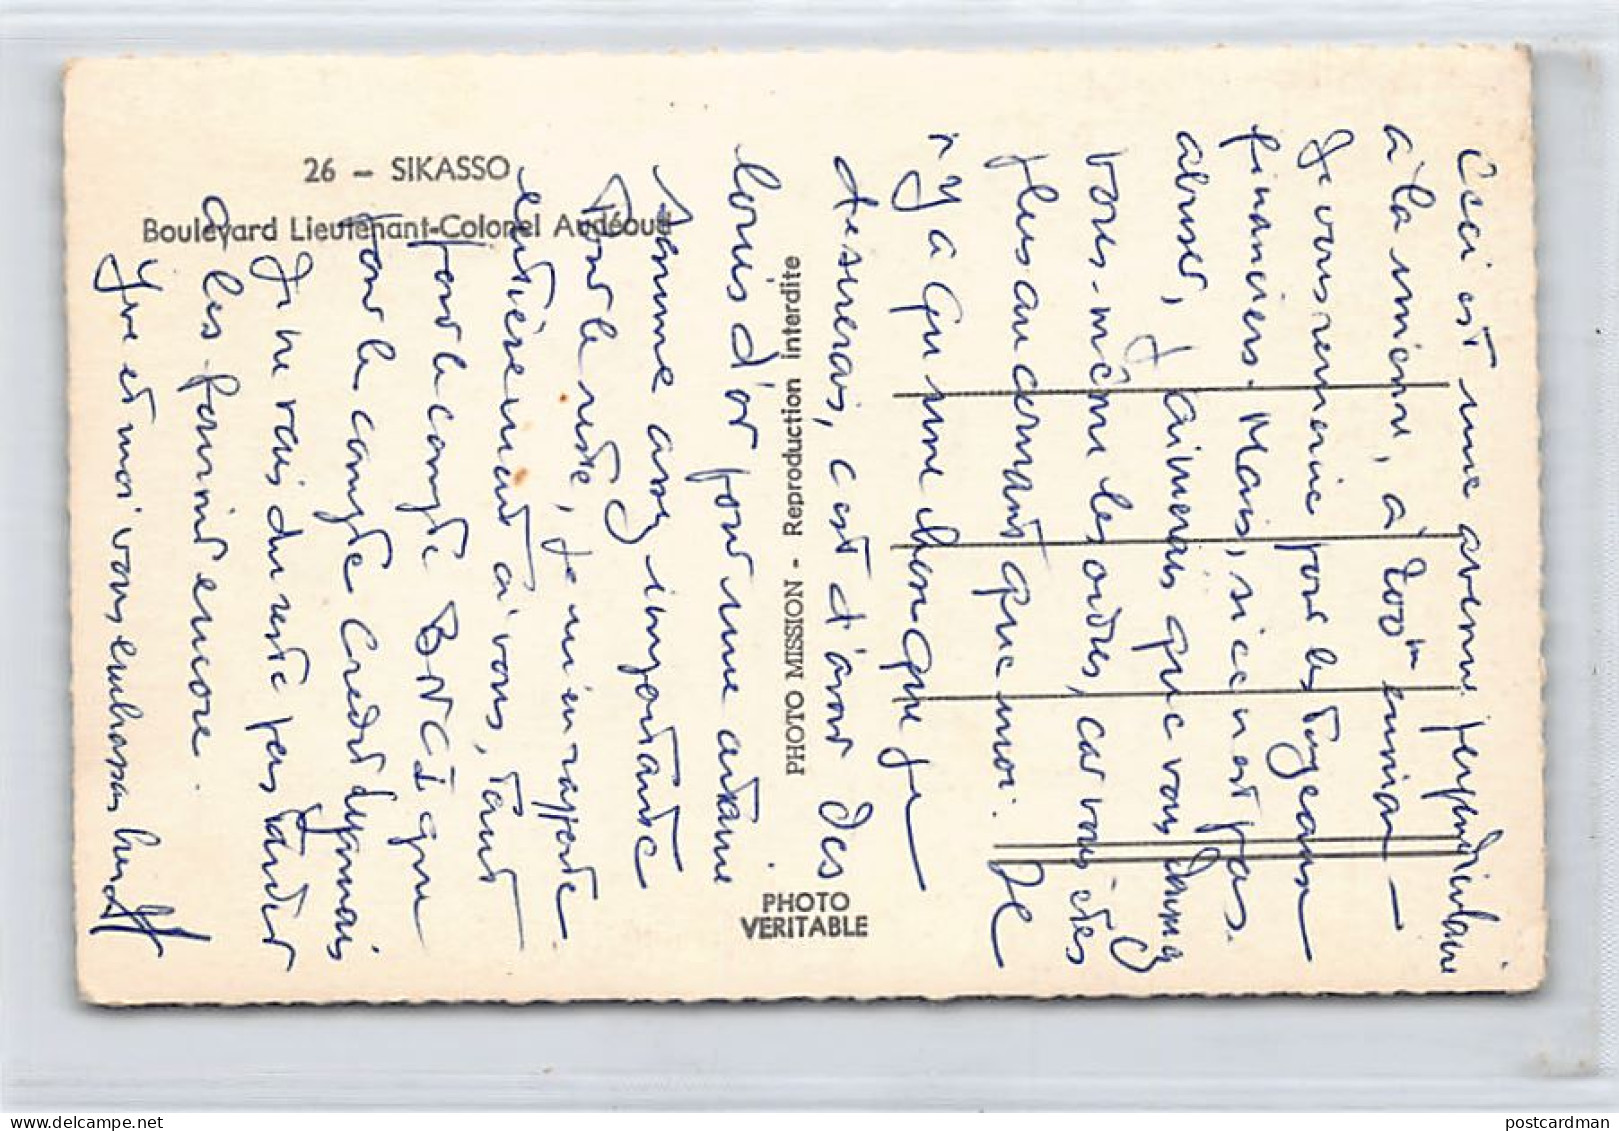 26 - SIKASSO
Boulevard Lieutenant-Colonel Audéoud
PHOTO MISSION - Reproduction interdite
PHOTO
VERITABLE
Ceci est une avenue perpendiculaire
à la mienne, à 200m environ
Je vous remercie pour les tuyaux
financiers. Mais, si ce n'est pas
abuser, j'aimerais que vous donniez
vous-même les ordres, car vous êtes
plus au courant que moi. Il
n'y a qu'une chose que je
désirerais, c'est d'avoir des
louis d'or pour une
somme assez importante
Pour le reste, je m'en rapporte
entièrement à vous, tant
pour le compte BNCI que
pour le compte Crédit Lyonnais
Je ne vais du reste pas tarder
à les fournir encore.
Yve et moi vous embrassons
postcardman